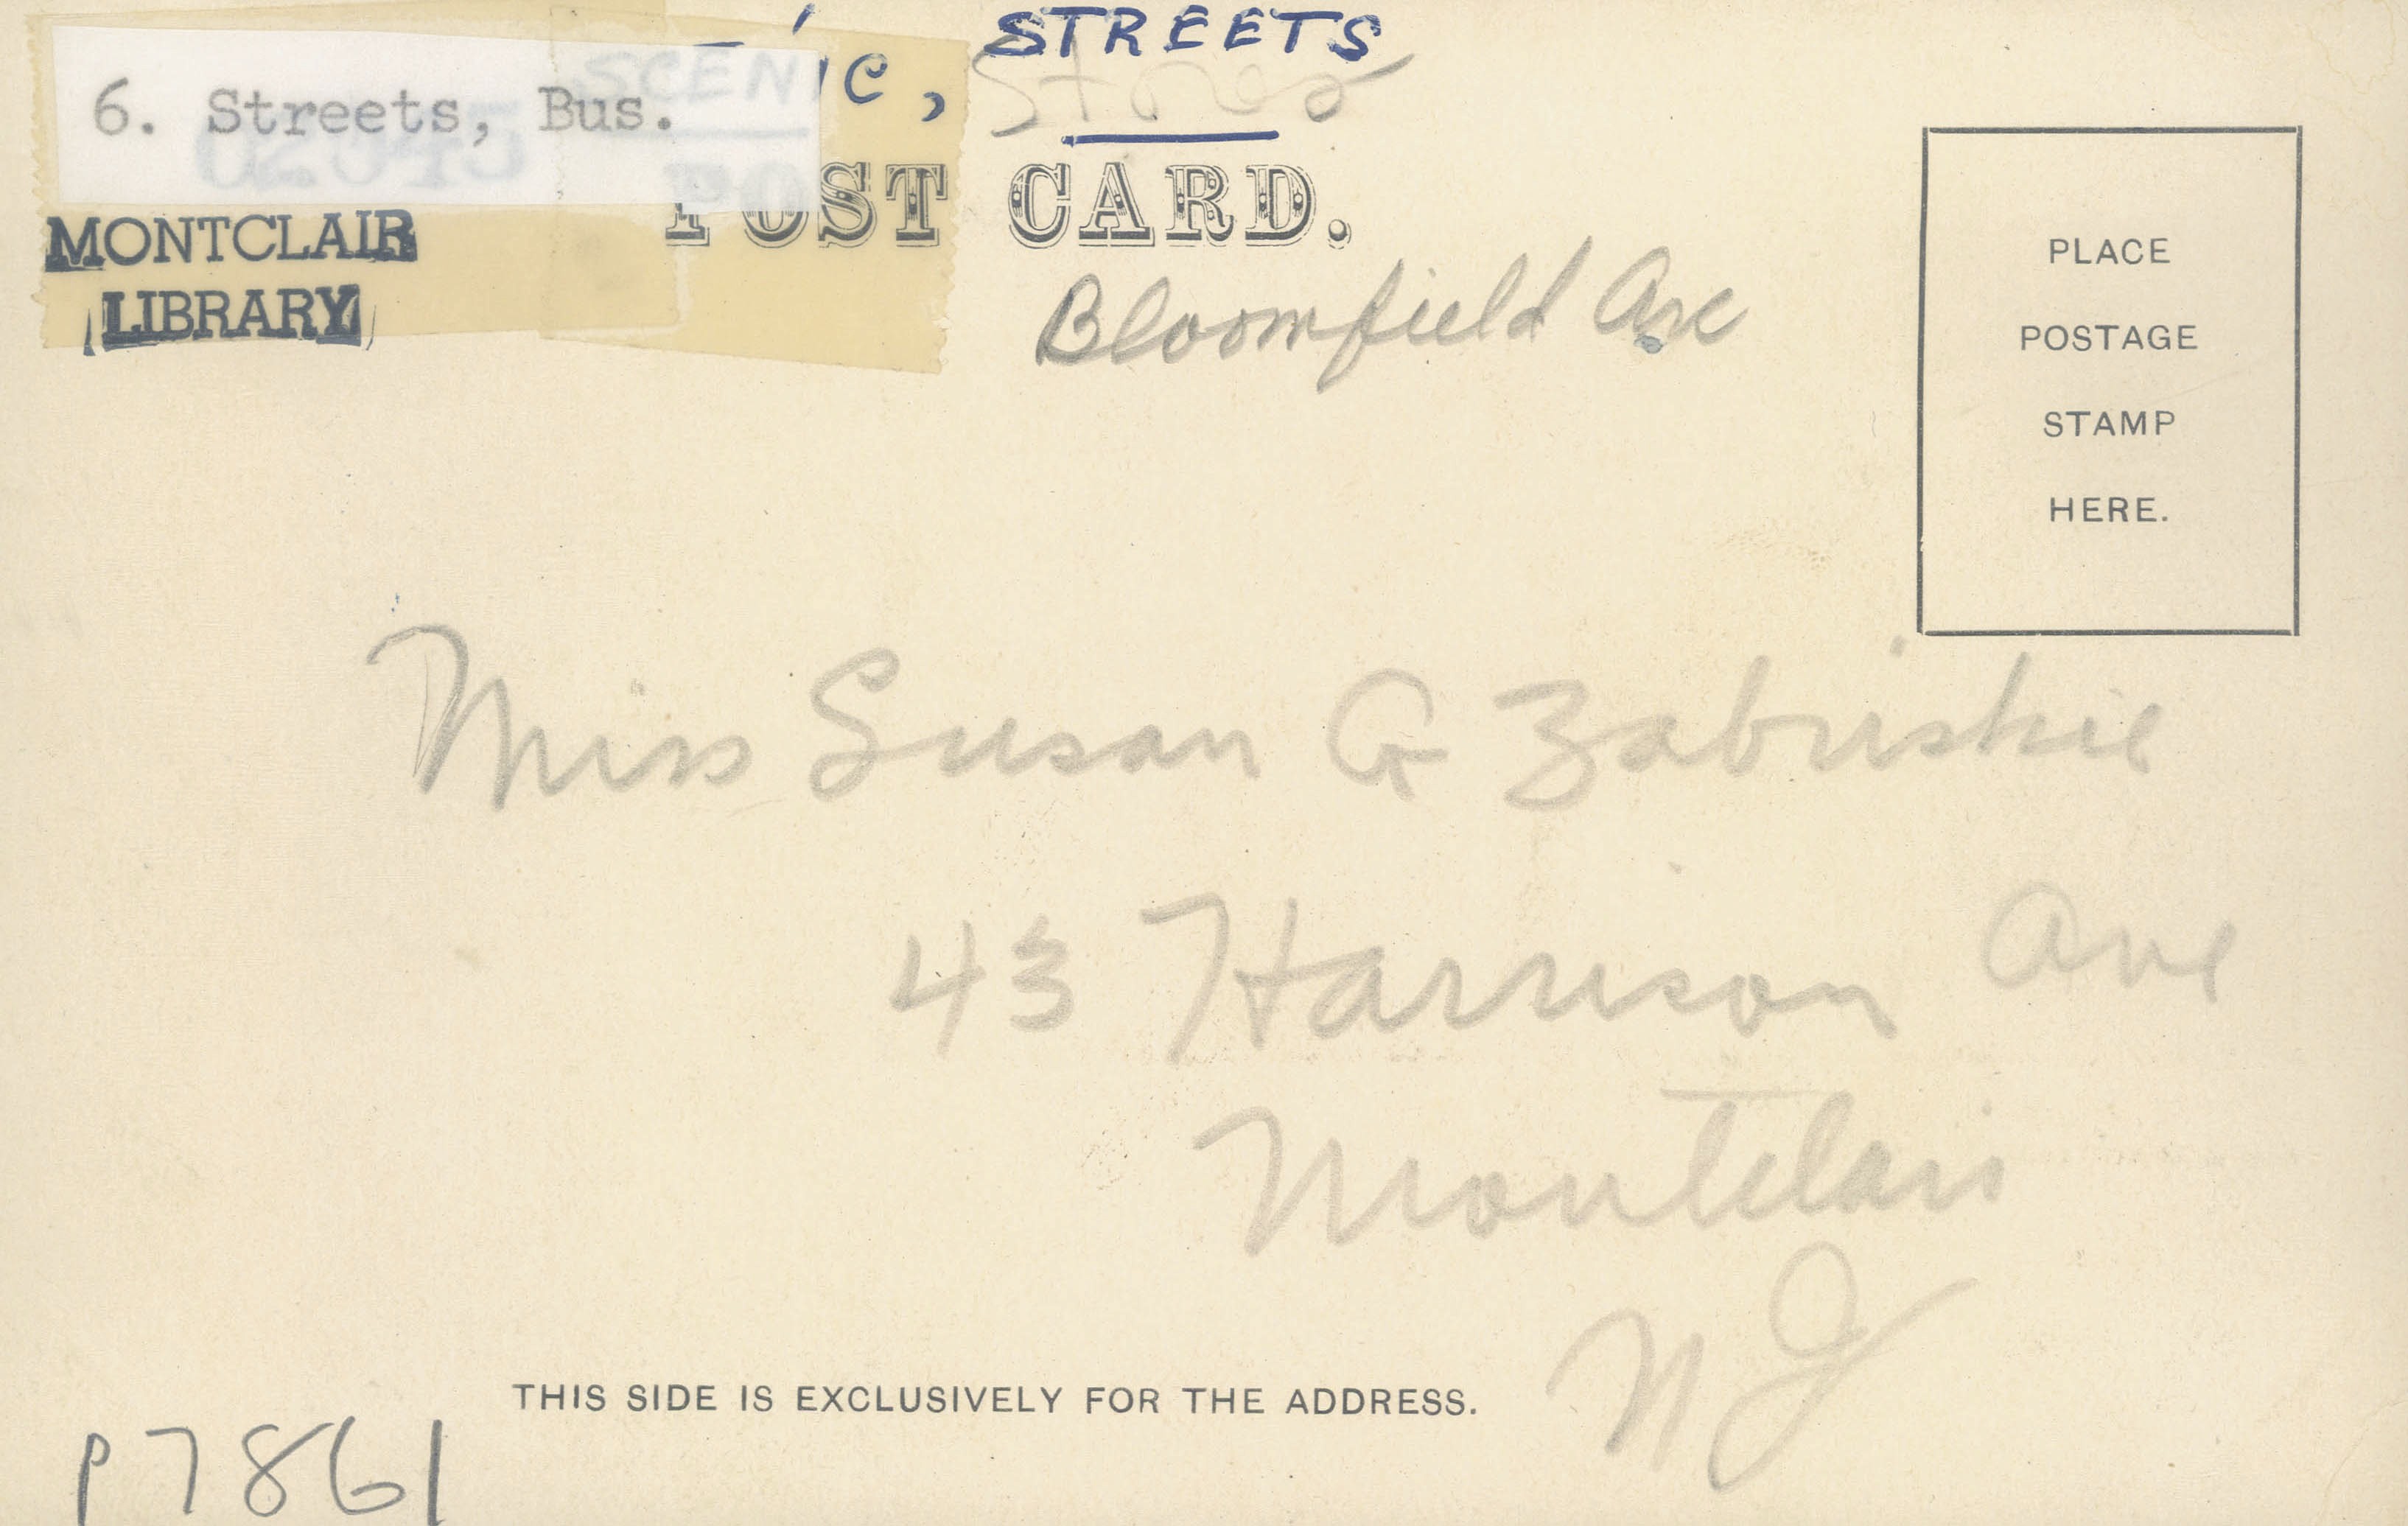 SCENIC, STREETS
Stores
6. Streets, Bus.
POST CARD.
MONTCLAIR
LIBRARY
Bloomfield Ave
PLACE
POSTAGE
STAMP
HERE.
Miss Susan G Zabriskie
43 Harrison Ave
Montclair
NJ
THIS SIDE IS EXCLUSIVELY FOR THE ADDRESS.
P7861